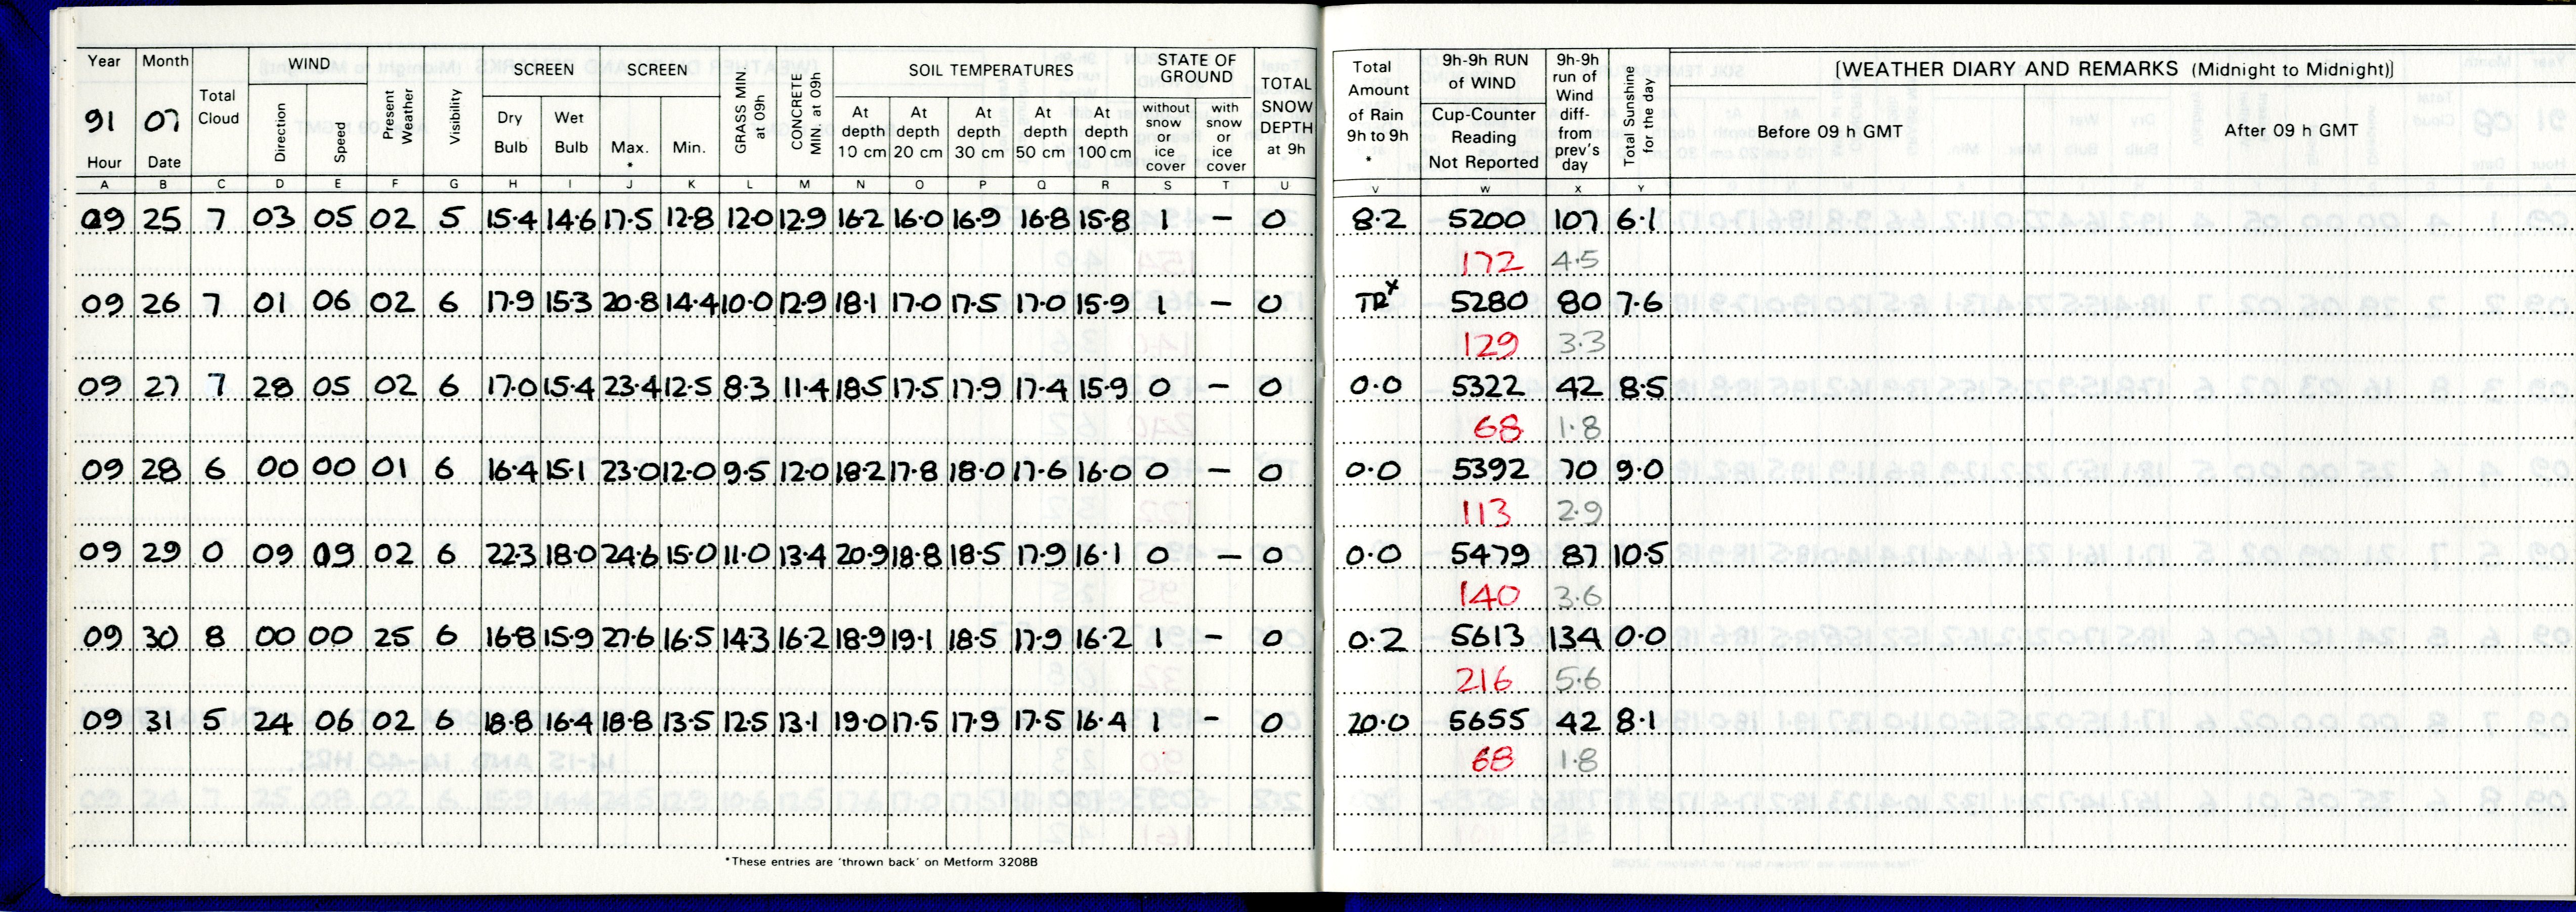 Year Month WIND SCREEN SCREEN SOIL TEMPERATURES STATE OF GROUND
91 07 Total Cloud Direction Speed Present Weather Visibility Dry Bulb Wet Bulb Max. * Min. GRASS MIN. at 09h CONCRETE MIN. at 09h At depth 10 cm At depth 20 cm At depth 30 cm At depth 50 cm At depth 100 cm without snow or ice cover with snow or ice cover TOTAL SNOW DEPTH at 9h
Hour Date
Total Amount of Rain 9h to 9h * 9h-9h RUN of WIND Cup-Counter Reading Not Reported 9h-9h run of Wind diff- from prev's day Total Sunshine for the day
(WEATHER DIARY AND REMARKS (Midnight to Midnight))
Before 09 h GMT After 09 h GMT
A B C D E F G H I J K L M N O P Q R S T U V W X Y
09 25 7 03 05 02 5 15.4 14.6 17.5 12.8 12.0 12.9 16.2 16.0 16.9 16.8 15.8 1 – 0 8.2 5200 107 6.1
172 4.5
09 26 7 01 06 02 6 17.9 15.3 20.8 14.4 10.0 12.9 18.1 17.0 17.5 17.0 15.9 1 – 0 TR x 5280 80 7.6
129 3.3
09 27 7 28 05 02 6 17.0 15.4 23.4 12.5 8.3 11.4 18.5 17.5 17.9 17.4 15.9 0 – 0 0.0 5322 42 8.5
68 1.8
09 28 6 00 00 01 6 16.4 15.1 23.0 12.0 9.5 12.0 18.2 17.8 18.0 17.6 16.0 0 – 0 0.0 5392 70 9.0
113 2.9
09 29 0 09 09 02 6 22.3 18.0 24.6 15.0 11.0 13.4 20.9 18.8 18.5 17.9 16.1 0 – 0 0.0 5479 87 10.5
140 3.6
09 30 8 00 00 25 6 16.8 15.9 27.6 16.5 14.3 16.2 18.9 19.1 18.5 17.9 16.2 1 – 0 0.2 5613 134 0.0
216 5.6
09 31 5 24 06 02 6 18.8 16.4 18.8 13.5 12.5 13.1 19.0 17.5 17.9 17.5 16.4 1 – 0 20.0 5655 42 8.1
68 1.8
*These entries are 'thrown back' on Metform 3208B